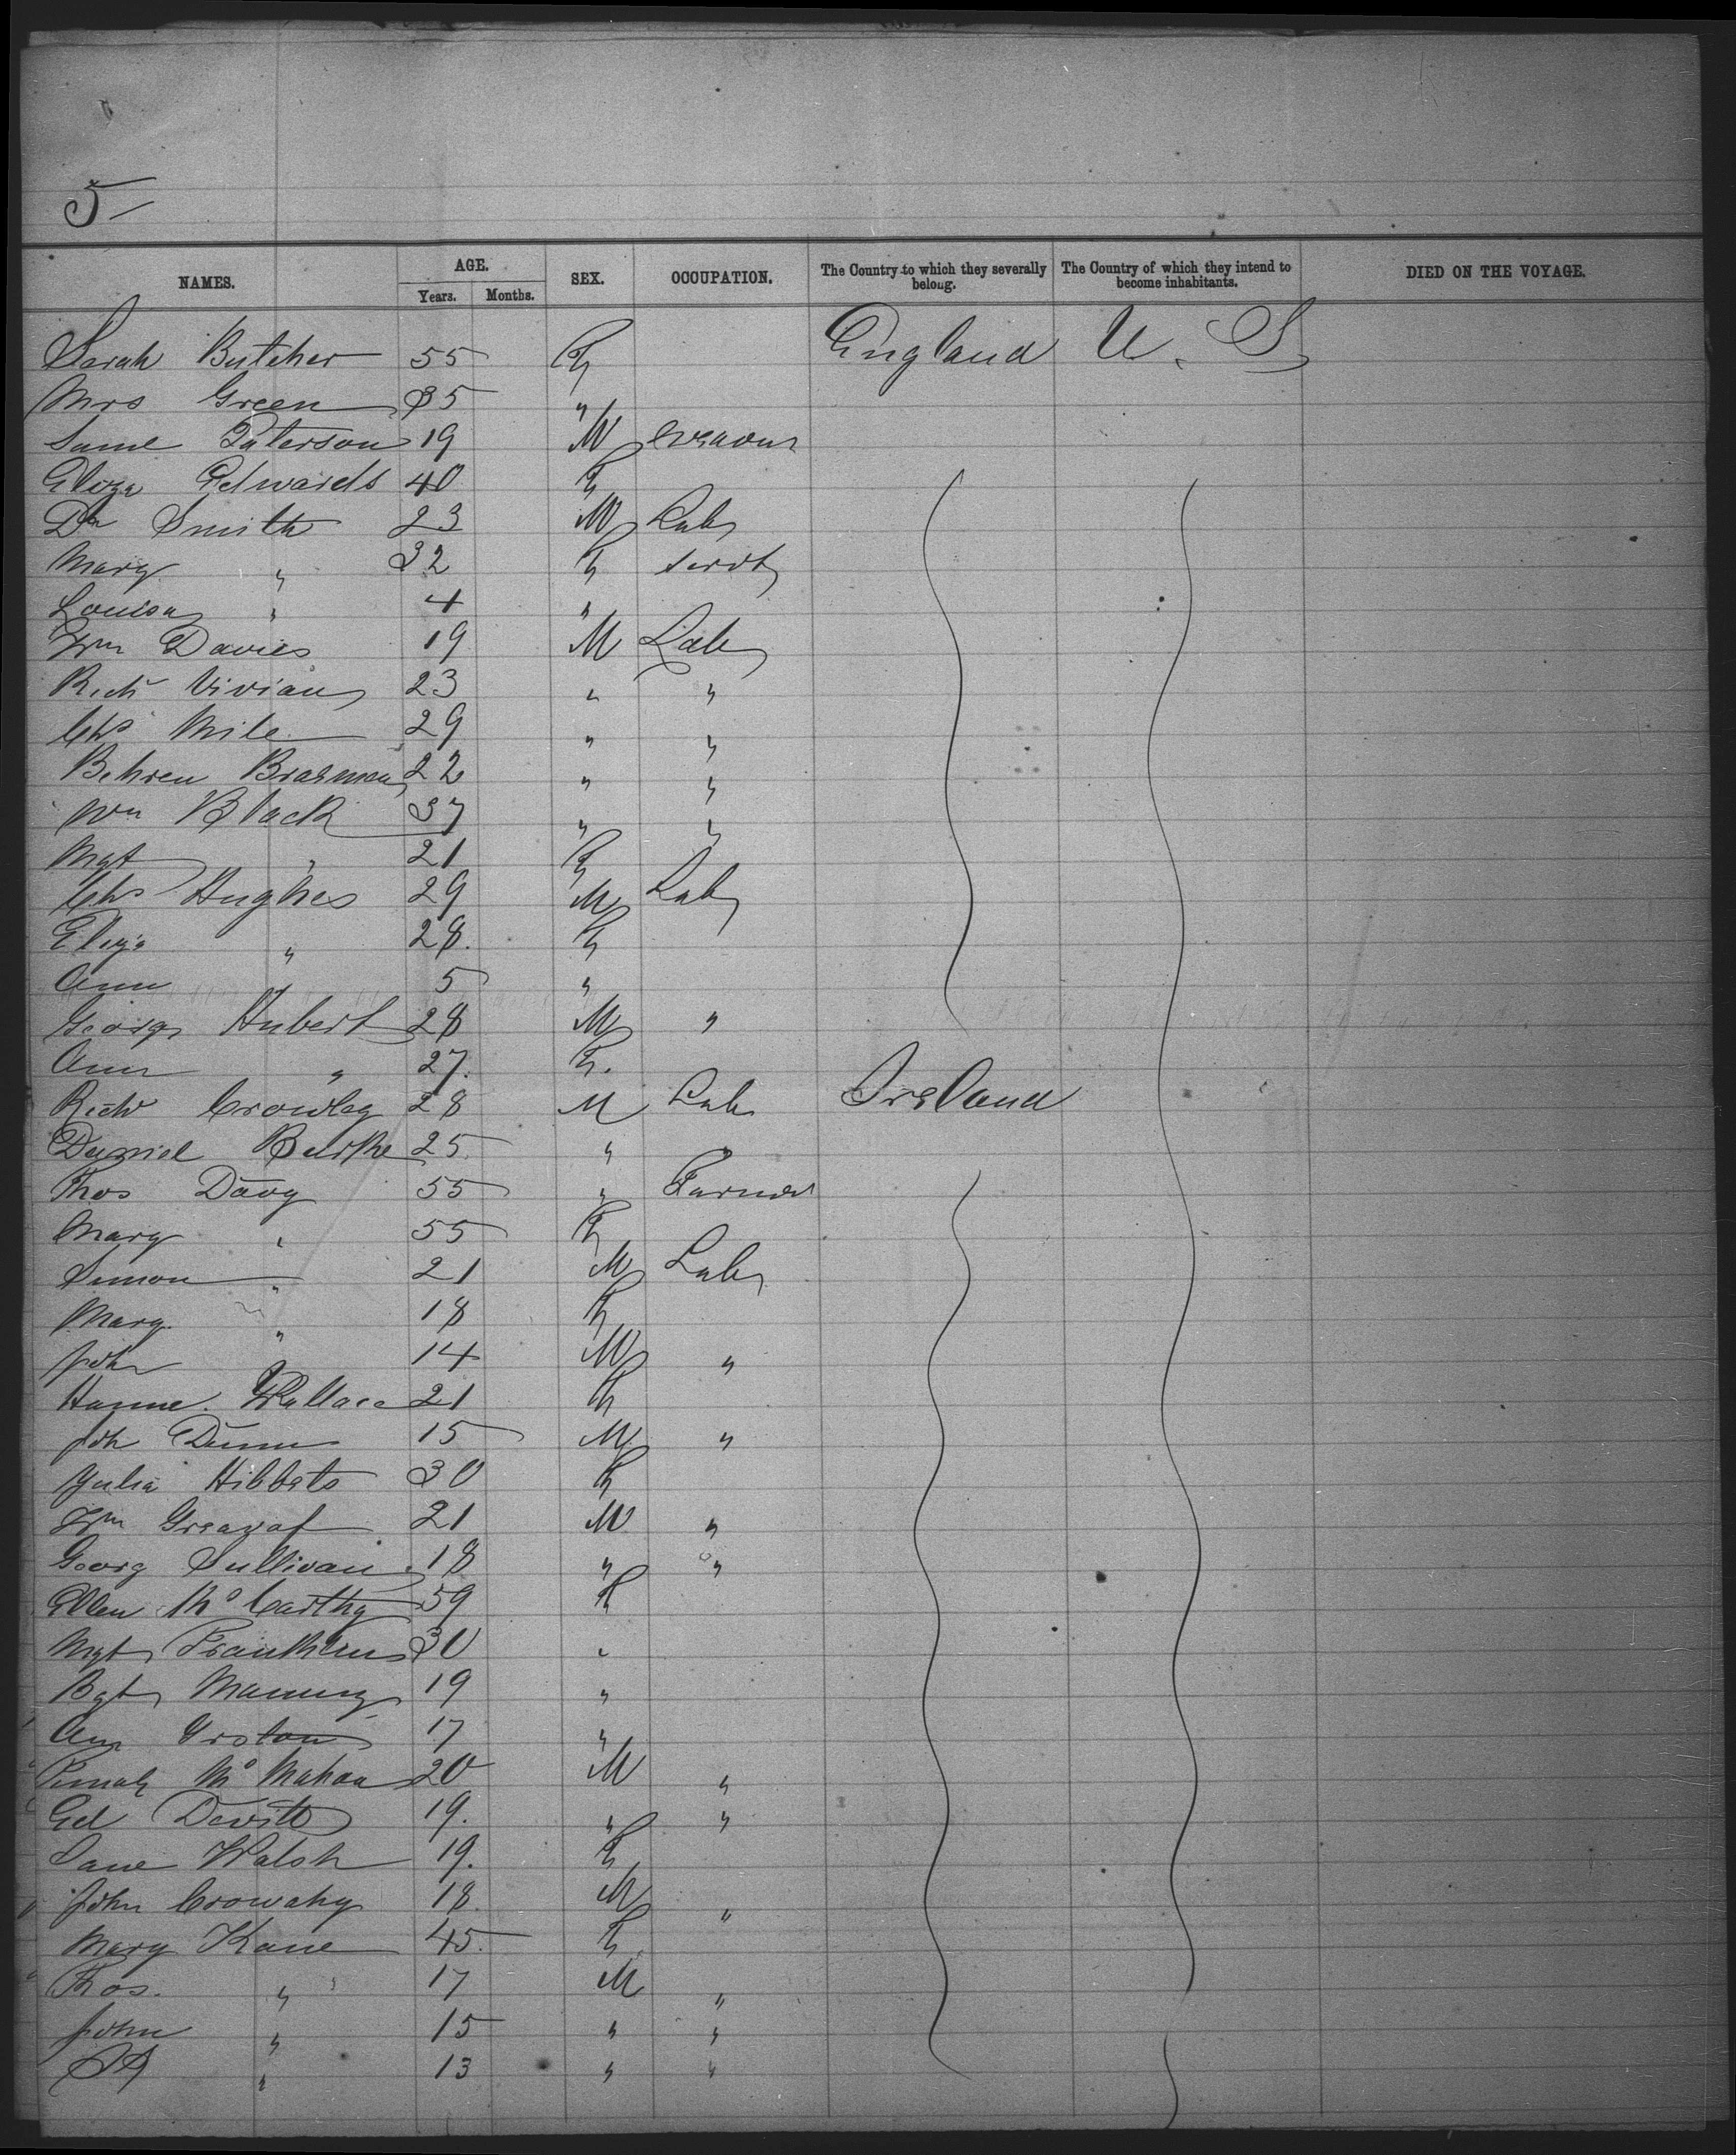 5
NAMES. AGE. SEX. OCCUPATION. The Country to which they severally belong. The Country of which they intend to become inhabitants. DIED ON THE VOYAGE.
Years. Months.
Sarah Butcher 55 F England U. S
Mrs Green 35 "
Saml Paterson 19 M
Eliza Edwards 40 F
Dn Smith 23 M Lab
Mary " 32 F servt
Louisa " 4 "
Wm Davies 19 M Lab
Richd Vivian 23 " "
Chs Mile 29 " "
Behren Brasman 22 " "
Wm Black 37 " "
Mgt " 21 F
Chs Hughes 29 M Lab
Eliza " 28. F
Ann 5 "
Georg Hubert 28 M "
Ann " 27. F.
Richd Crowley 28 M Lab Ireland
Daniel Burke 25 " "
Thos Davy 55 " Farmer
Mary " 55 F
Simon " 21 M Lab
Mary " 18 F
John 14 M "
Hanne Wallace 21 F
Joh Dunn 15 M "
Julia Hibbets 30 F
Wm 21 M "
Georg Sullivan 18 " "
Ellen McCarthy 59 F
Mgt 30 "
Bgt Manning 19 "
Ann 17 "
McMahon 20 M "
Ed Devitt 19. " "
Jane Walsh 19. F
John Crowahy 18 M "
Mary Kane 45 F
Thos. " 17 M "
John " 15 " "
" 13 " "